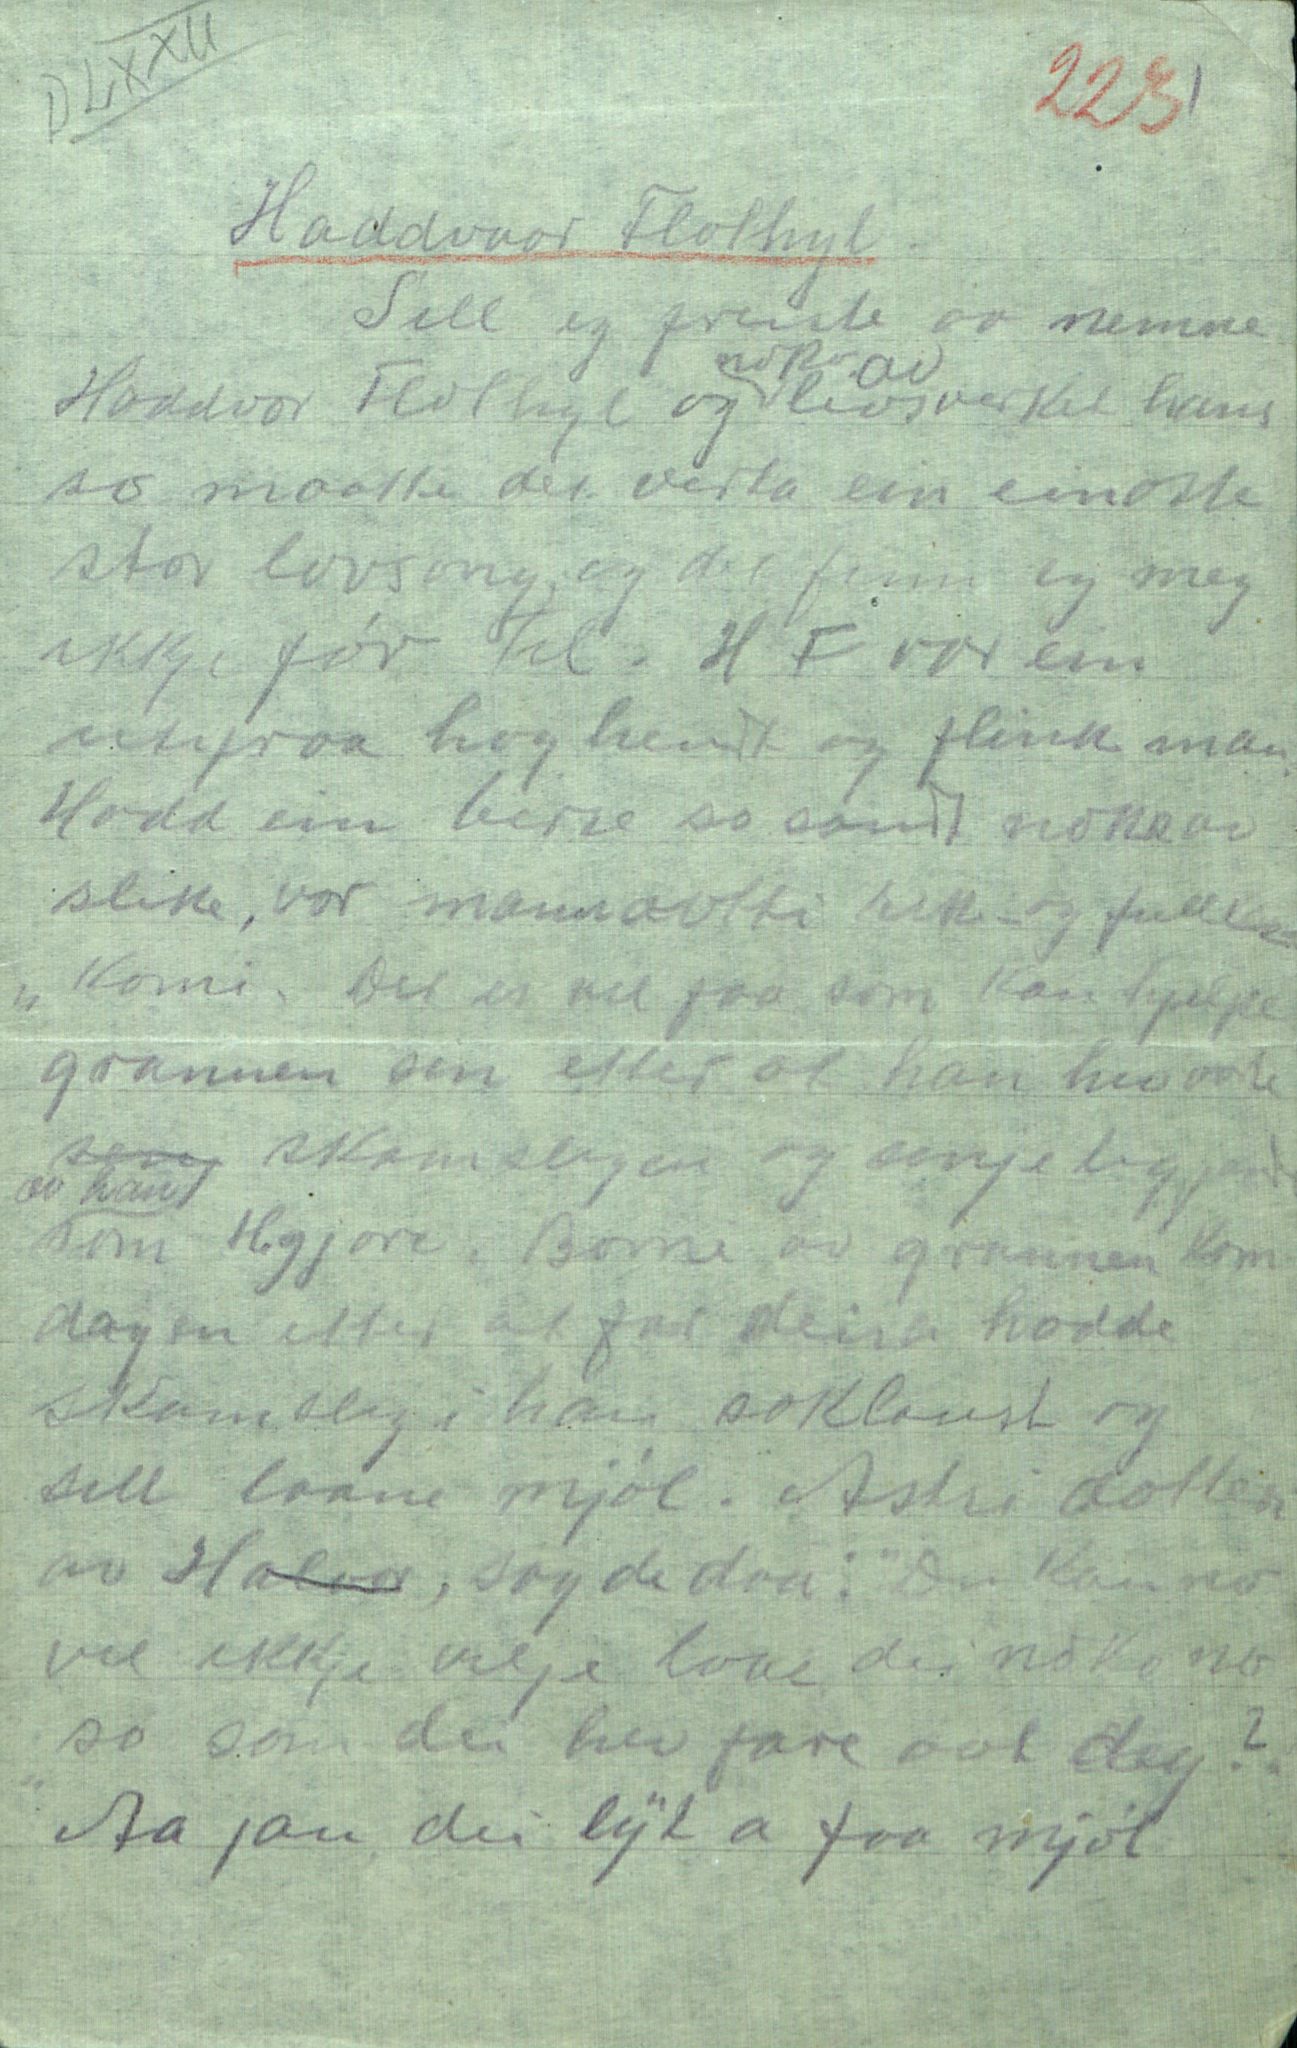 DLXXII
223 1
Haddvaar Flothyl.
Sill eg freiste aa nemne
Haddvor Flothyl og noko av livsverket hans
so maatte det verta ein eindste
stor lovsong, og det finn eg meg
ikkje før til. H F var ein
utifraa hoghendt og flink man.
Hadd ein berre so sandt noko av
slike, var manna
"komi. Det er vel faa som kan hjelpe
grannen sin etter at han hev vore
skamslegen og
av han som H. gjore. Borne av grannen kom
dagen etter at far deira hadde
skamslegi han saklaust og
sill laane mjøl. Astri dotter
av Halvor, sagde daa: "Du kan no
vel ikkje vilje lone dei noko no
so som dei hev fare aat deg?"
"Aa jau dei lyt a faa mjøl